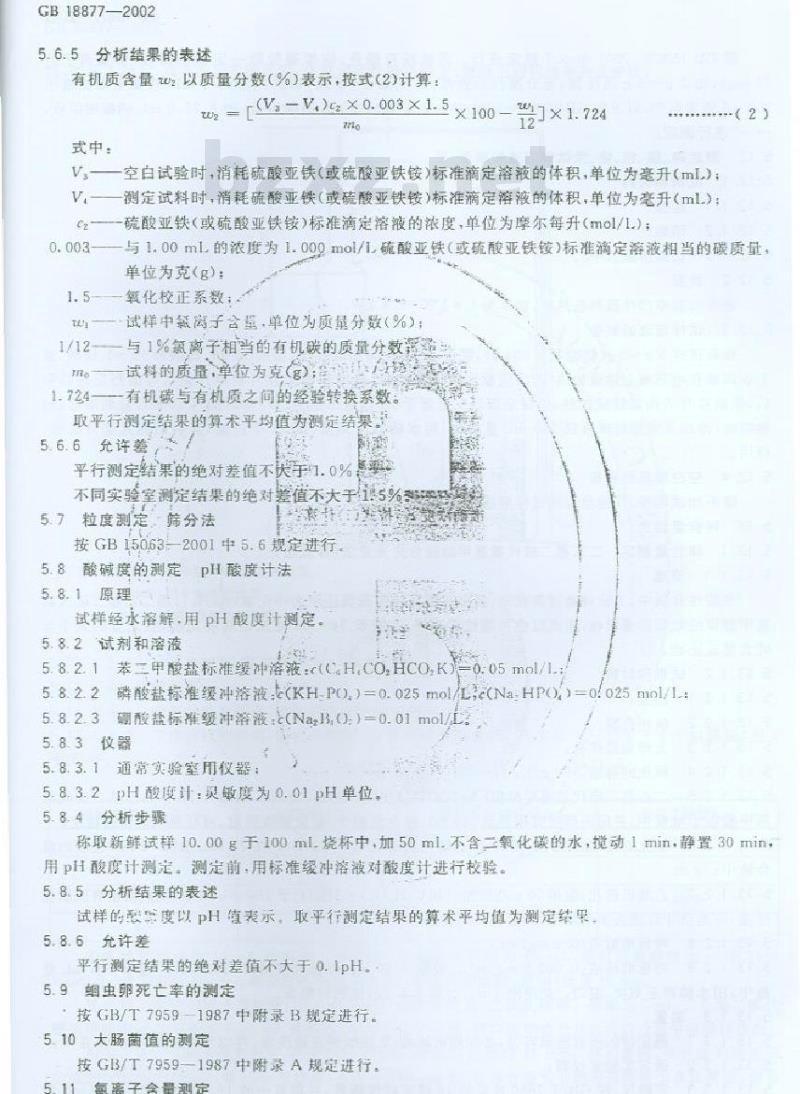 GB 18877—2002
5.6.5 分析结果的表述
有机质含量 w₂ 以质量分数(%)表示,按式(2)计算:
w₂ = [(V₃ − V₄)c₂ × 0.003 × 1.5 / m₀ × 100 − w₁/12] × 1.724 …………( 2 )
式中:
V₃——空白试验时,消耗硫酸亚铁(或硫酸亚铁铵)标准滴定溶液的体积,单位为毫升(mL);
V₄——测定试料时,消耗硫酸亚铁(或硫酸亚铁铵)标准滴定溶液的体积,单位为毫升(mL);
c₂——硫酸亚铁(或硫酸亚铁铵)标准滴定溶液的浓度,单位为摩尔每升(mol/L);
0.003——与 1.00 mL 的浓度为 1.000 mol/L 硫酸亚铁(或硫酸亚铁铵)标准滴定溶液相当的碳质量,
单位为克(g);
1.5——氧化校正系数;
w₁——试样中氯离子含量,单位为质量分数(%);
1/12——与 1%氯离子相当的有机碳的质量分数
m₀——试料的质量,单位为克(g);
1.724——有机碳与有机质之间的经验转换系数。
取平行测定结果的算术平均值为测定结果。
5.6.6 允许差
平行测定结果的绝对差值不大于 1.0%
不同实验室测定结果的绝对差值不大于 1.5%
5.7 粒度测定 筛分法
按 GB 15063—2001 中 5.6 规定进行。
5.8 酸碱度的测定 pH 酸度计法
5.8.1 原理
试样经水溶解,用 pH 酸度计测定。
5.8.2 试剂和溶液
5.8.2.1 苯二甲酸盐标准缓冲溶液:c(C₆H₄CO₂HCO₂K)=0.05 mol/L;
5.8.2.2 磷酸盐标准缓冲溶液:c(KH₂PO₄)=0.025 mol/L,c(Na₂HPO₄)=0.025 mol/L;
5.8.2.3 硼酸盐标准缓冲溶液:c(Na₂B₄O₇)=0.01 mol/L。
5.8.3 仪器
5.8.3.1 通常实验室用仪器;
5.8.3.2 pH 酸度计:灵敏度为 0.01 pH 单位。
5.8.4 分析步骤
称取新鲜试样 10.00 g 于 100 mL 烧杯中,加 50 mL 不含二氧化碳的水,搅动 1 min,静置 30 min,
用 pH 酸度计测定。测定前,用标准缓冲溶液对酸度计进行校验。
5.8.5 分析结果的表述
试样的酸碱度以 pH 值表示。取平行测定结果的算术平均值为测定结果。
5.8.6 允许差
平行测定结果的绝对差值不大于 0.1pH。
5.9 蛔虫卵死亡率的测定
按 GB/T 7959—1987 中附录 B 规定进行。
5.10 大肠菌值的测定
按 GB/T 7959—1987 中附录 A 规定进行。
5.11 氯离子含量测定
bzxz.net